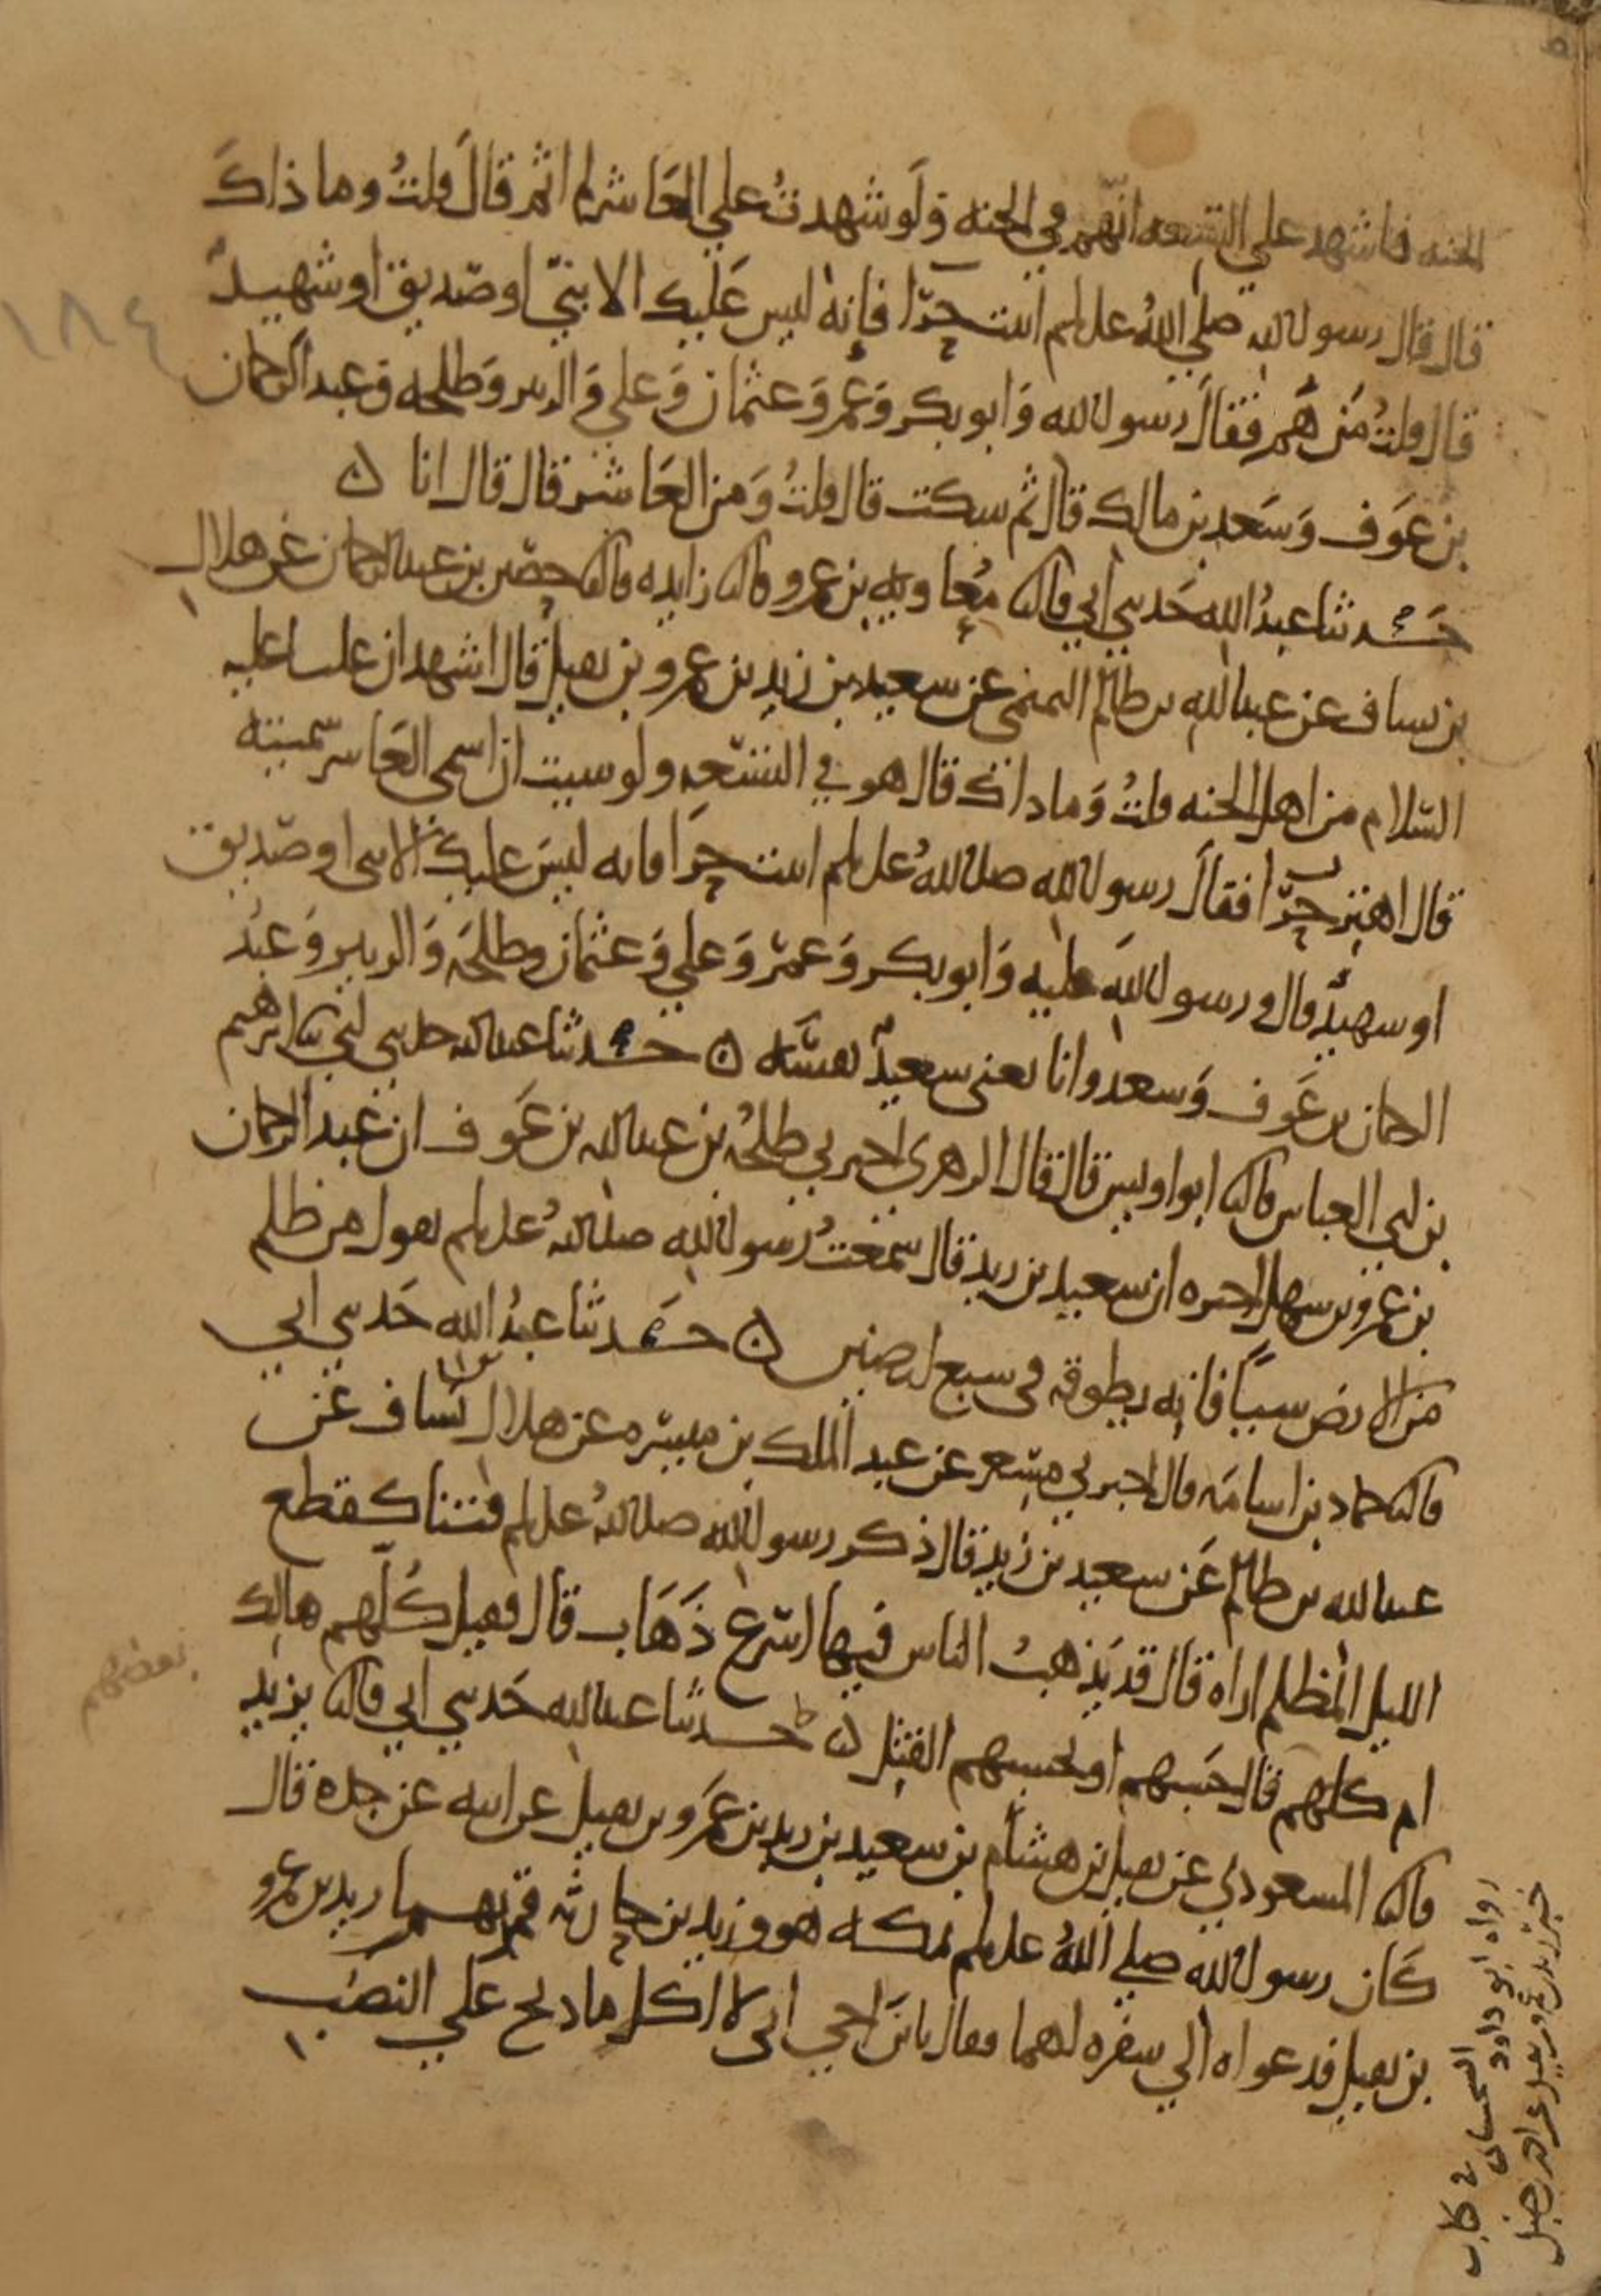 الجنه فاشهد علي التسعه انهم في الجنه ولو شهدت علي العاشر لم اثم قال قلت وما ذاك
قال قال رسول الله صلي الله علىلم اثبت حرا فإنه ليس عليك الا نبي او صديق او شهيد
قال قلت من هم فقال رسول الله وابو بكر وعمر وعثمان وعلي والزبير وطلحه وعبد الرحمان
بن عوف وسعد بن مالك قال ثم سكت قال قلت ومن العاشر قال قال انا ه
حدثنا عبد الله حدثني ابي قال ثنا معاويه بن عمرو قال ثنا زايده قال ثنا حصين بن عبد الرحمان عن هلال
بن يساف عن عبد الله بن ظالم التميمي عن سعيد بن زيد بن عمرو بن نفيل قال اشهد ان عليا عليه
السلام من اهل الجنه قلت وما ذاك قال هو في التسعه ولو شيت ان اسمي العاشر سميته
قال اهتز حرا فقال رسول الله صلى الله علىلم اثبت حرا فانه ليس عليك الا نبي او صديق
او شهيد قال ورسول الله عليه وابو بكر وعمر وعلي وعثمان وطلحه والزبير وعبد
الرحمان بن عوف وسعد وانا يعني سعيد نفسه ه حدثنا عبد الله حدثني ابي ثنا ابرهيم
بن ابي العباس قال ثنا ابو اويس قال قال الزهري اخبرني طلحه بن عبد الله بن عوف ان عبد الرحمان
بن عمرو بن سهل اخبره ان سعيد بن زيد قال سمعت رسول الله صلى الله علىلم يقول من ظلم
من الارض شيا فانه يطوقه في سبع ارضين ه حدثنا عبد الله حدثني ابي
قال ثنا حماد بن اسامه قال اخبرني مسعر عن عبد الملك بن ميسره عن هلال بن يساف عن
عبد الله بن ظالم عن سعيد بن زيد قال ذكر رسول الله صلى الله علىلم فتنا كقطع
الليل المظلم اراه قال قد يذهب الناس فيها اسرع ذهاب قال فقيل كلهم هالك
ام كلهم قال حسبهم او بحسبهم القتل ه حدثنا عبد الله حدثني ابي قال ثنا يزيد
قال ثنا المسعودي عن نفيل بن هشام بن سعيد بن زيد بن عمرو بن نفيل عن ابيه عن جده قال
كان رسول الله صلي الله علىلم بمكه هو وزيد بن حارثه فمر بهما زيد بن عمرو
بن نفيل فدعواه الي سفره لهما فقال يا بن اخي اني لا اكل ما ذبح علي النصب
١٨٤
بعضهم
رواه ابو داود